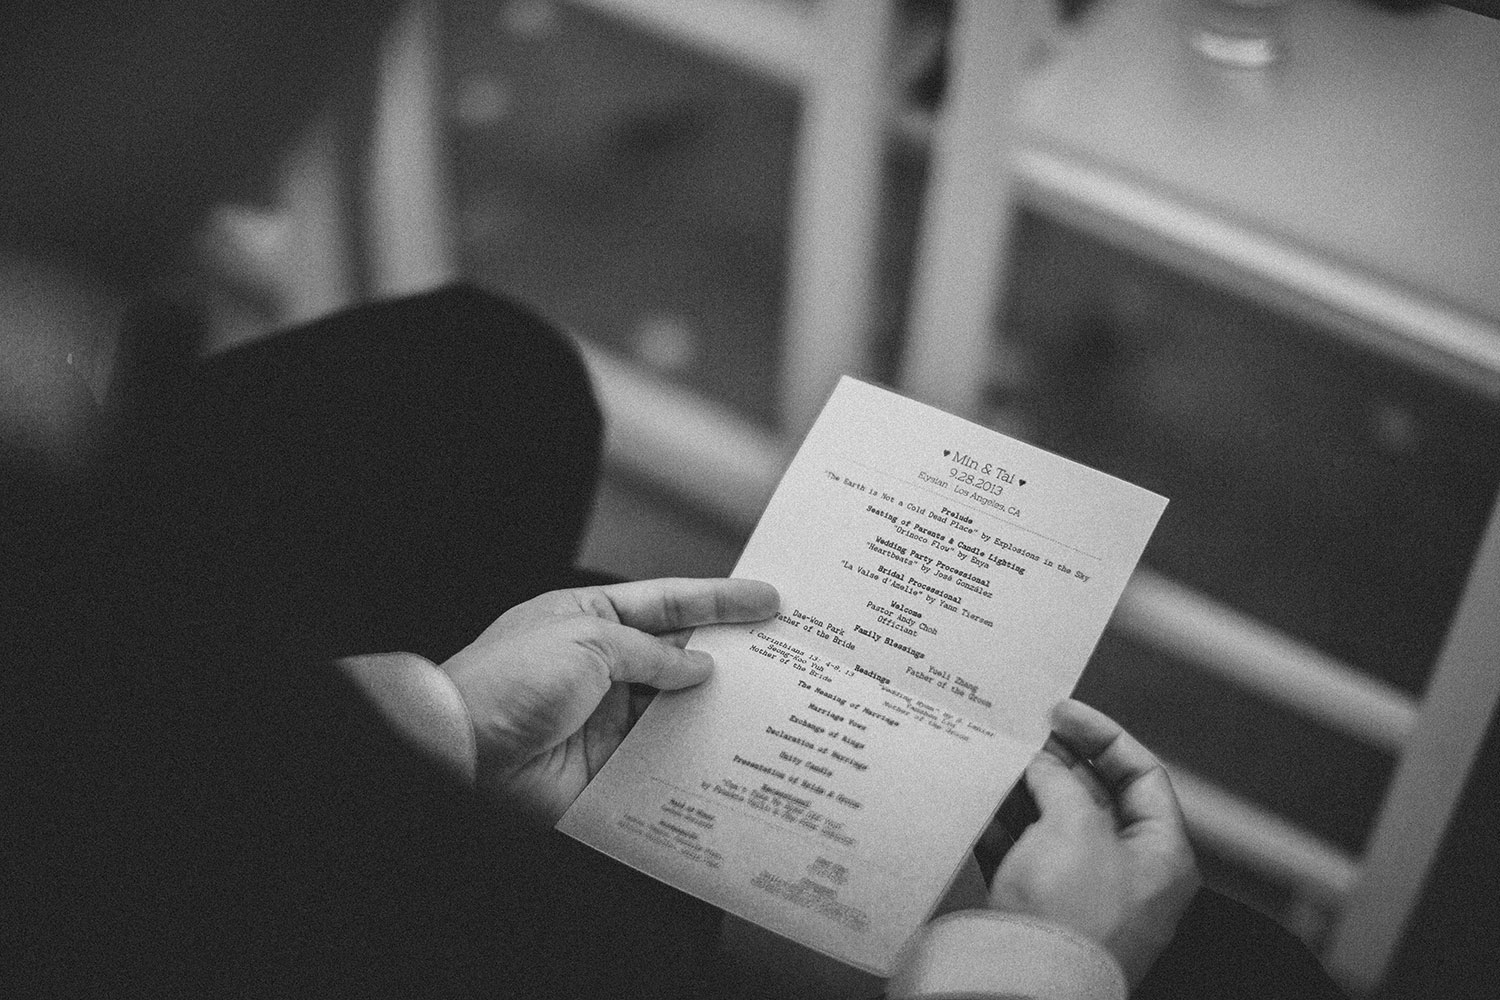 ♥ Min & Tai ♥
9.28.2013
Elysian Los Angeles, CA
Prelude
"The Earth is Not a Cold Dead Place" by Explosions in the Sky
Seating of Parents & Candle Lighting
"Orinoco Flow" by Enya
Wedding Party Processional
"Heartbeats" by José González
Bridal Processional
"La Valse d'Amelie" by Yann Tiersen
Welcome
Pastor Andy Choh
Officiant
Family Blessings
Dae-Won Park
Father of the Bride
Yueli Zhang
Father of the Groom
Readings
1 Corinthians 13: 4-8, 13
Seong-Koo Yuh
Mother of the Bride
"Wedding by
Mother of the Groom
The Meaning of Marriage
Marriage Vows
Exchange of Rings
Declaration of Marriage
Unity Candle
Presentation of Bride & Groom
Recessional
"Can't Take My Eyes Off You"
by Frankie Valli & The Four Seasons